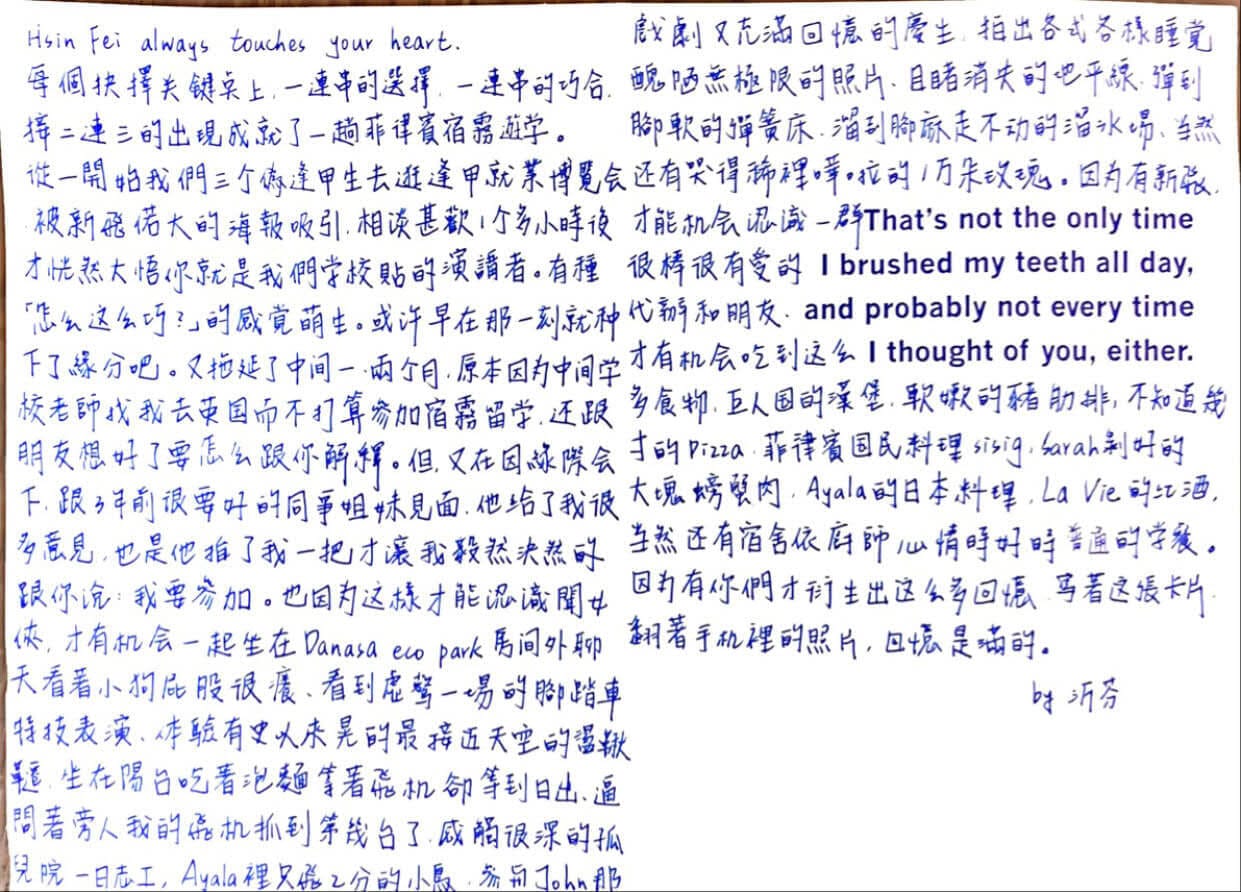 Hsin Fei always touches your heart.
每個抉擇关鍵点上,一連串的選擇,一連串的巧合,
接二連三的出現成就了一趟菲律賓宿霧遊学。
從一開始我們三个傻逢甲生去逛逢甲就業博覽会
被新飛偌大的海報吸引,相谈甚歡1个多小時後
才恍然大悟你就是我們学校貼的演講者。有種
「怎么这么巧?」的感覚萌生。或许早在那一刻就种
下了緣分吧。又拖延了中间一、兩个月,原本因为中间学
校老師找我去英国而不打算參加宿霧留学,还跟
朋友想好了要怎么跟你解釋。但,又在因緣際会
下,跟3年前很要好的同事姐妹見面,他给了我很
多意見,也是他推了我一把才讓我毅然決然的
跟你说:我要参加。也因为这樣才能认識聞女
俠,才有机会一起坐在Danasa eco park房间外聊
天看著小狗屁股很癢、看到虛驚一場的腳踏車
特技表演、体驗有史以來晃的最接近天空的盪鞦
韆,坐在陽台吃著泡麵等著飛机卻等到日出、逼
問著旁人我的飛机抓到第幾台了,感觸很深的孤
兒院一日志工,Ayala裡只飛2分的小鳥,參与John那
戲劇又充滿回憶的慶生,拍出各式各樣睡覚
醜陋無極限的照片、目睹消失的地平線、彈到
腳軟的彈簧床、溜到腳麻走不动的溜冰場、当然
还有哭得稀裡嘩啦的1万朵玫瑰。因为有新飛,
才能机会认識一群That's not the only time
很棒很有爱的 I brushed my teeth all day,
代辦和朋友、and probably not every time
才有机会吃到这么 I thought of you, either.
多食物,巨人国的漢堡,軟嫩的豬肋排,不知道幾
寸的Pizza,菲律賓国民料理sisig,Sarah剝好的
大塊螃蟹肉,Ayala的日本料理,La Vie的红酒,
当然还有宿舍依厨師心情時好時普通的学餐。
因为有你們才衍生出这么多回憶,写著这張卡片
翻著手机裡的照片,回憶是滿的。
by 沂芬